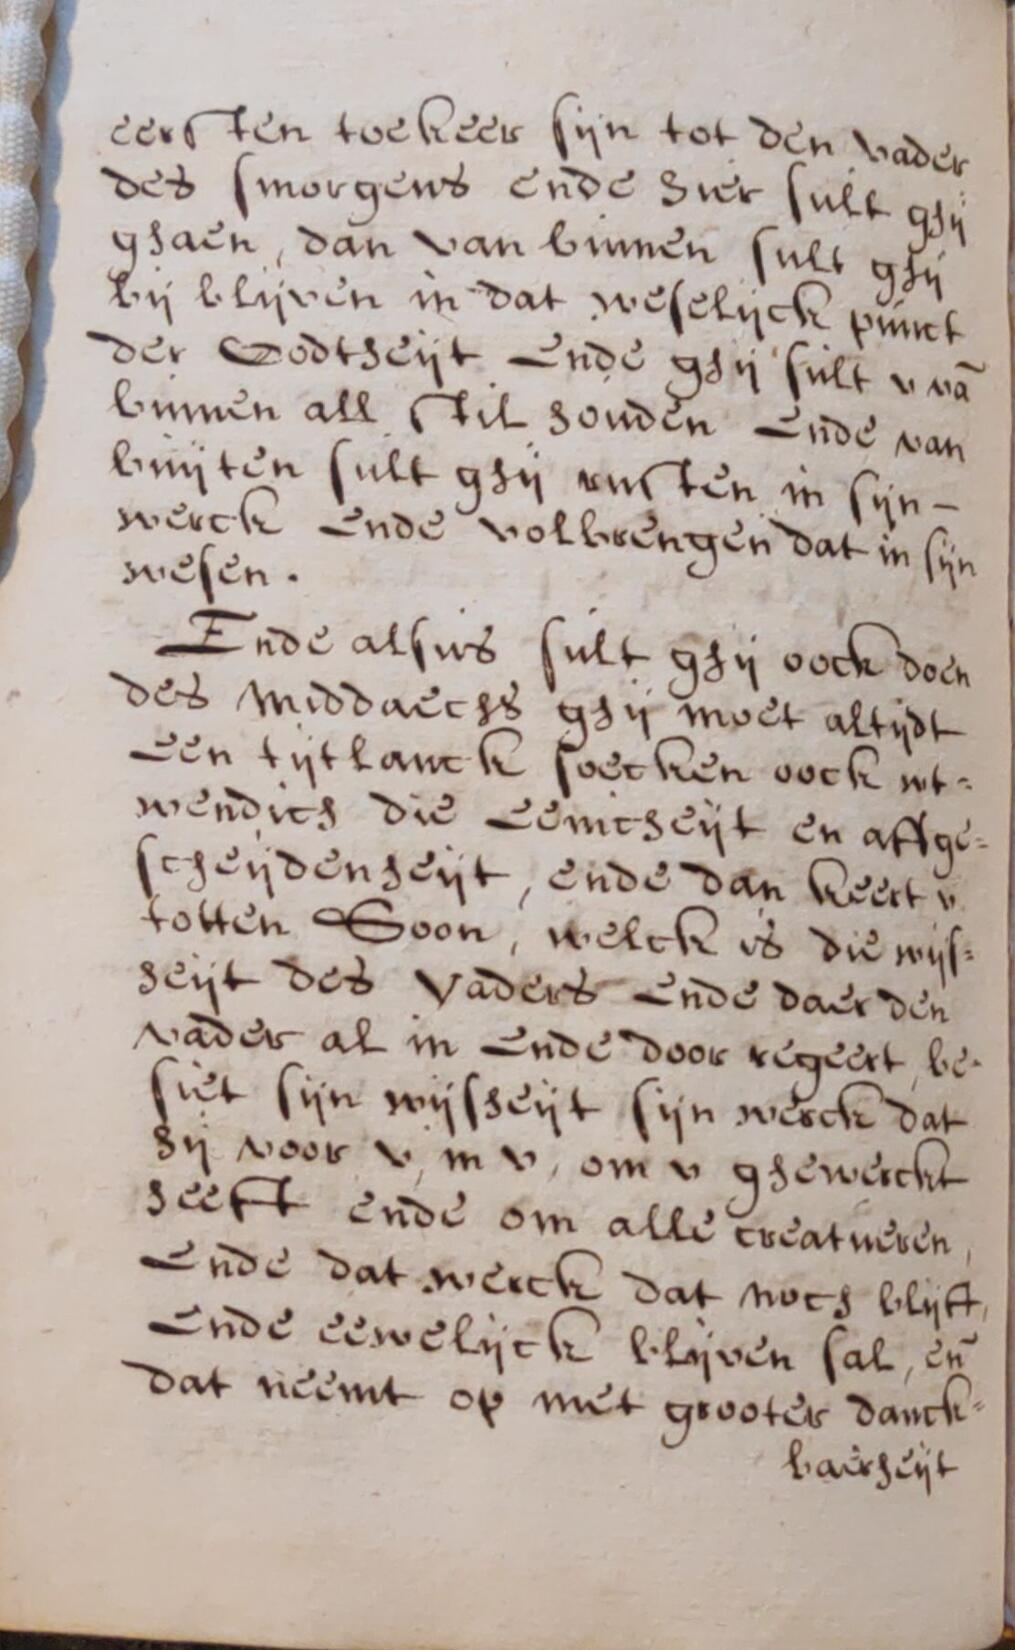 eersten toekeer sijn tot den vader
des smorgens ende hier sult ghij
ghaen, dan van binnen sult ghij
bij blijven in dat weselijck punct
der Godtheijt Ende ghij sult v vā
binnen all stil houden Ende van
buijten sult ghij rusten in sijn –
werck Ende volbrengen dat in sijn
wesen.
Ende alsus sult ghij oock doen
des middaechs ghij moet altijdt
Een tijtlanck soecken oock wt=
wendich die Eenicheijt en affge=
scheijdenheijt, ende dan keert v
totten Soon, welck is die wijs=
heijt des Vaders Ende daer den
vader al in Ende door regeert, be-
siet sijn wijsheijt sijn werck dat
hij voor v, in v, om v ghewerckt
heefft ende om alle creatueren,
Ende dat werck dat noch blijft,
Ende eewelijck blijven sal, eñ
dat neemt op met grooter danck=
baerheijt